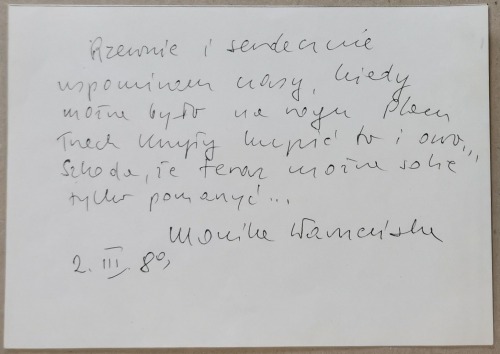 Rzewnie i serdecznie
wspominam czasy, kiedy
można było na rogu Placu
Trzech Krzyży kupić to i owo...
Szkoda, że teraz można sobie
tylko pomarzyć...
Monika
2. III. 80,